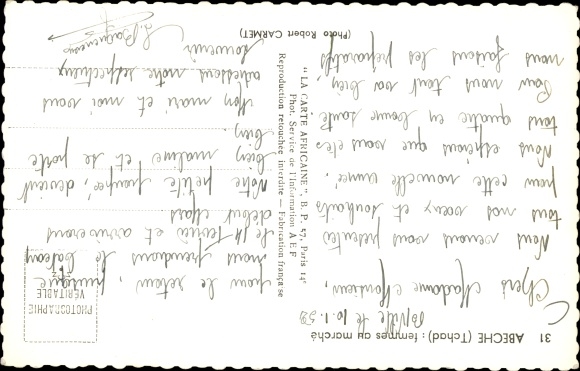 31 ABECHE (Tchad) : femmes au marché
le 10.1.59
Chers Madame, Monsieur,
Nous venons vous présenter
tous nos vœux et souhaits
pour cette nouvelle année.
Nous espérons que vous êtes
tous quatre en bonne santé
Pour nous tout va bien,
nous faisons les préparatifs
pour le retour,
nous prendrons le bateau
le 14 février et arriverons
début Mars
Notre petite devient
bien maligne et se porte
bien.
Mon mari et moi vous
adressons notre respectueux
souvenir
"LA CARTE AFRICAINE", B. P. 57, Paris 14e
Phot. Service de l'Information A E F
Reproduction retouchée interdite — Fabrication française
(Photo Robert CARMET)
PHOTOGRAPHIE
VERITABLE